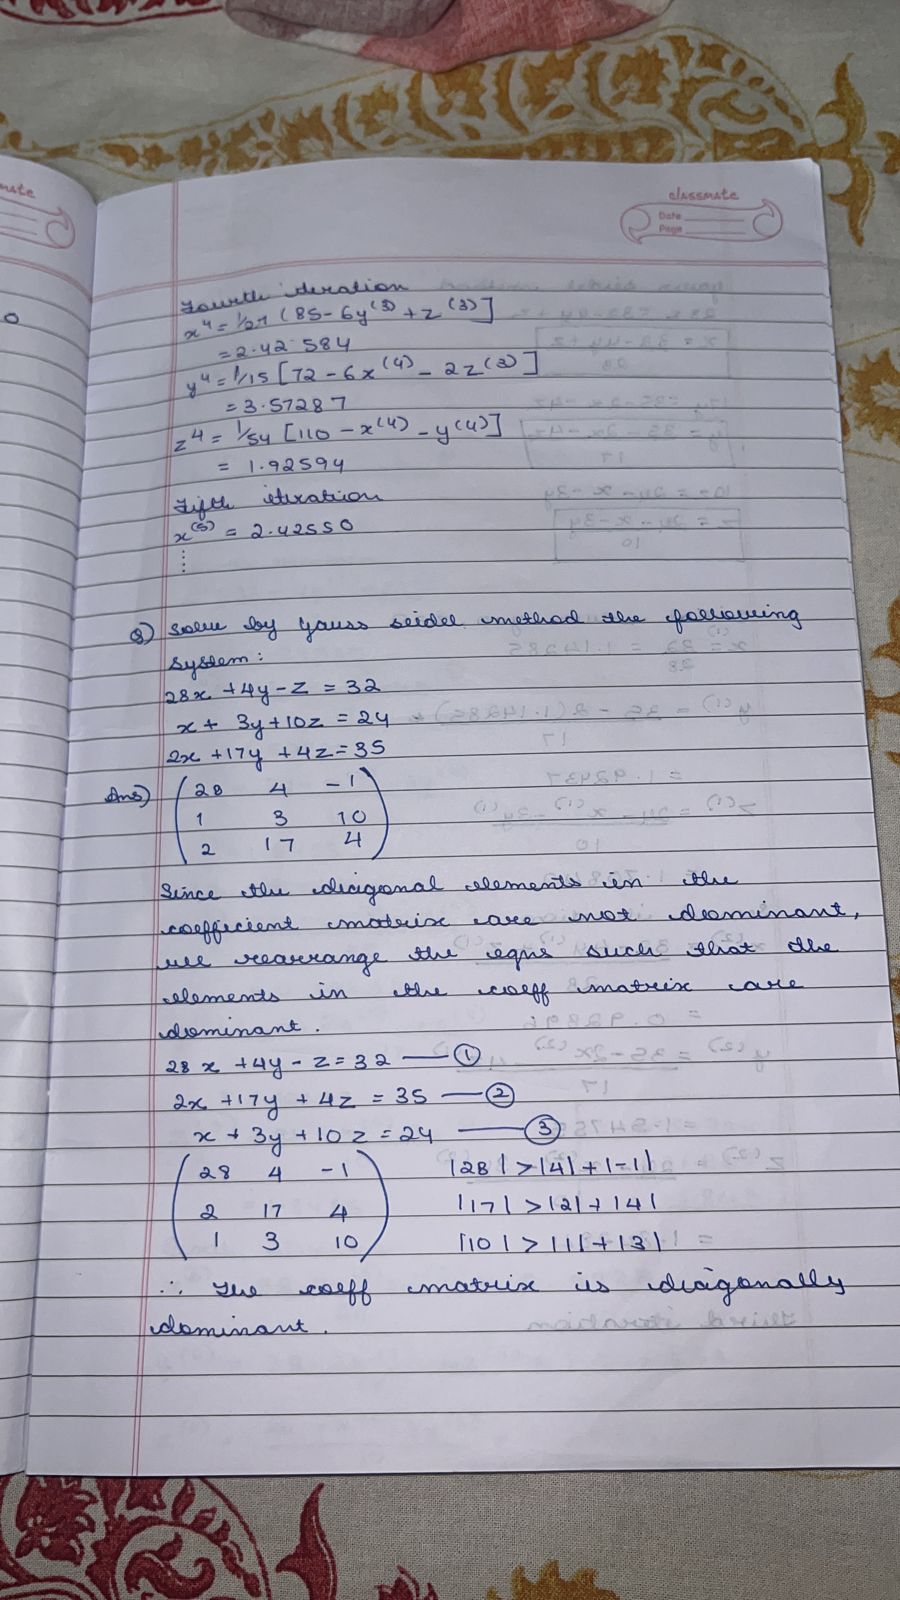 mate
classmate
Date
Page
Fourth iteration
x⁴ = 1/27 (85 - 6y⁽³⁾ + z⁽³⁾]
= 2.42584
y⁴ = 1/15 [72 - 6x⁽⁴⁾ - 2z⁽³⁾]
= 3.57287
z⁴ = 1/54 [110 - x⁽⁴⁾ - y⁽⁴⁾]
= 1.92594
Fifth iteration
x⁽⁵⁾ = 2.42550
⋮
Q) Solve by Gauss seidel method the following
system:
28x + 4y - z = 32
x + 3y + 10z = 24
2x + 17y + 4z = 35
Ans) ( 28 4 -1
1 3 10
2 17 4 )
Since the diagonal elements in the
coefficient matrix are not dominant,
we rearrange the eqns such that the
elements in the coeff matrix are
dominant.
28x + 4y - z = 32 — ①
2x + 17y + 4z = 35 — ②
x + 3y + 10z = 24 — ③
( 28 4 -1 |28| > |4| + |-1|
2 17 4 |17| > |2| + |4|
1 3 10 ) |10| > |1| + |3|
∴ The coeff matrix is diagonally
dominant.